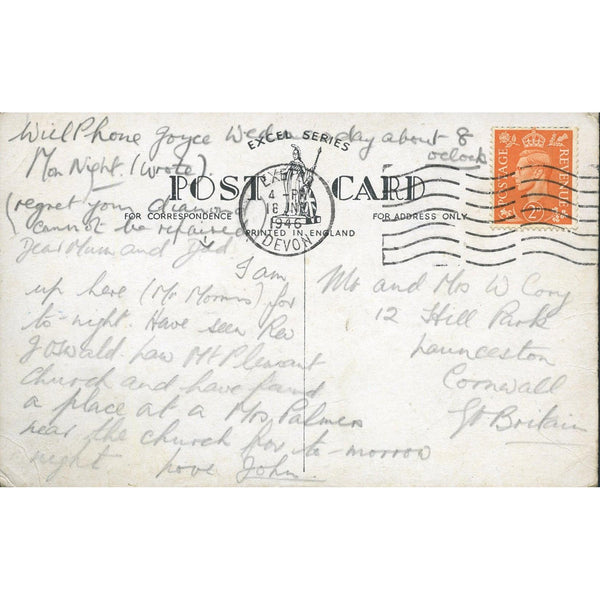 Will Phone Joyce Wednesday about 8
oclock
Mon Night. (wrote).
(regret your
cannot be repaired)
EXCEL SERIES
POST CARD
FOR CORRESPONDENCE
FOR ADDRESS ONLY
PRINTED IN ENGLAND
EXETER
4 - PM
18 JNE
1946
DEVON
POSTAGE
REVENUE
2D
Dear Mum and Dad.
I am
up here (Mr Morris) for
to-night. Have seen Rev
J Oswald. Law Mt Pleasant
Church and have found
a place at a Mrs Palmers
near the church for to-morrow
night love John.
Mr and Mrs W Cory
12 Hill Park
Launceston
Cornwall
Gt Britain